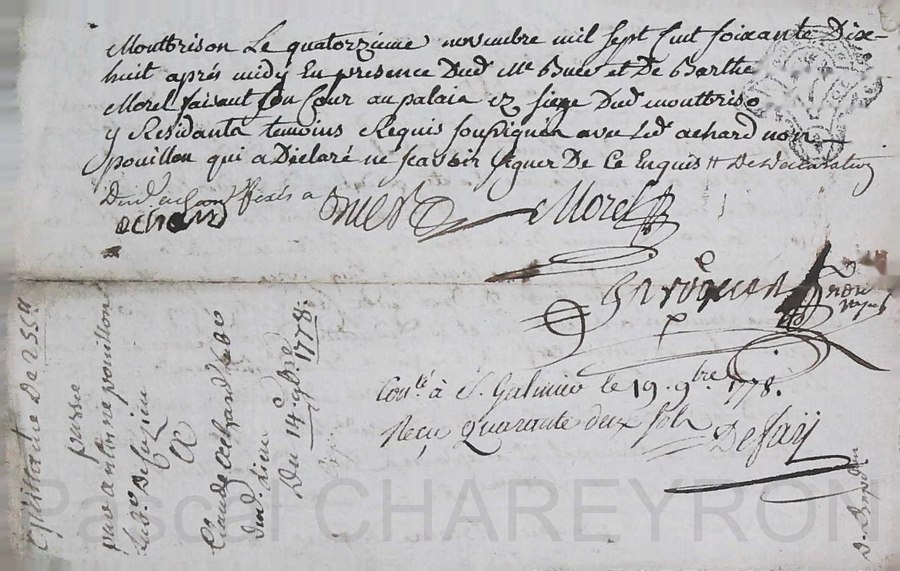 Montbrison Le quatorzieme novembre mil sept Cent soixante Dix-
huit aprés midy En presence Dud. Me Buer et De Barthe
Morel faisant son Cour au palais & siege Dud. montbriso
y Residants temoins Requis soussignés avec led. achard non
pouillon qui a Déclaré ne scavoir signer De Ce Enquis
Dud. achard
achard Buer Morel
Conlé à St. Galmier le 19. 9bre 1778.
Reçu Quarante deux sols
Defay
quittance De 255lt
passée
par antoine pouillon
a
Claude achard
dud. Lieu
Du 14e. 9bre 1778.
Pascal CHAREYRON